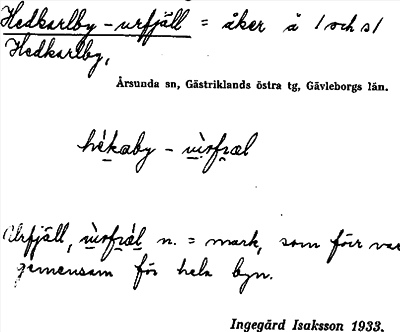 Hedkarlby-urfjäll = åker å 1 och s1
Hedkarlby,
Årsunda sn, Gästriklands östra tg, Gävleborgs län.
hékaby - ùrfræl
Urfjäll, ùrfræ̀l n. = mark, som förr var
gemensam för hela byn.
Ingegärd Isaksson 1933.